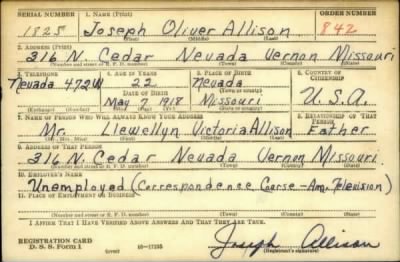 SERIAL NUMBER 1. NAME (Print) ORDER NUMBER
1825 Joseph Oliver Allison 842
(First) (Middle) (Last)
2. ADDRESS (Print)
316 N. Cedar Nevada Vernon Missouri
(Number and street or R. F. D. number) (Town) (County) (State)
3. TELEPHONE 4. AGE IN YEARS 5. PLACE OF BIRTH 6. COUNTRY OF CITIZENSHIP
Nevada 472W 22 Nevada
DATE OF BIRTH (Town or county)
May 7 1918 Missouri U.S.A.
(Exchange) (Number) (Mo.) (Day) (Yr.) (State or country)
7. NAME OF PERSON WHO WILL ALWAYS KNOW YOUR ADDRESS 8. RELATIONSHIP OF THAT PERSON
Mr. Llewellyn Victoria Allison Father
(Mr., Mrs., Miss) (First) (Middle) (Last)
9. ADDRESS OF THAT PERSON
316 N. Cedar Nevada Vernon Missouri.
(Number and street or R. F. D. number) (Town) (County) (State)
10. EMPLOYER'S NAME
Unemployed (Correspondence Coarse-Am. Television)
11. PLACE OF EMPLOYMENT OR BUSINESS
(Number and street or R. F. D. number) (Town) (County) (State)
I AFFIRM THAT I HAVE VERIFIED ABOVE ANSWERS AND THAT THEY ARE TRUE.
REGISTRATION CARD
D. S. S. Form 1 16-17105 Joseph Allison
(Registrant's signature)